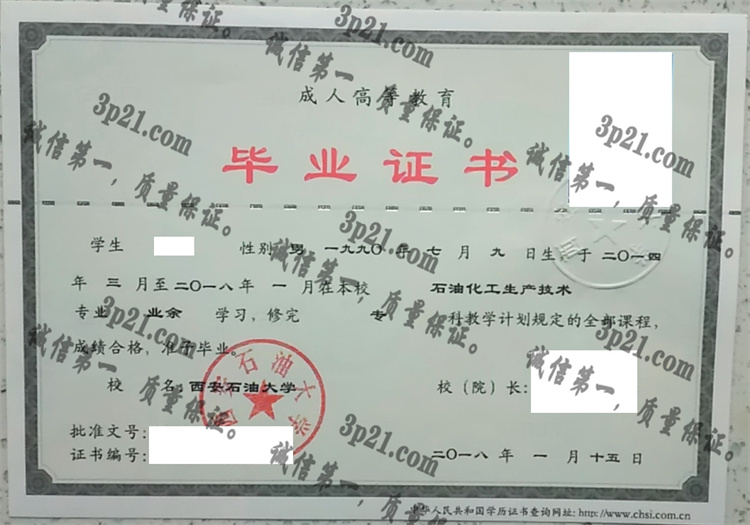 成人高等教育
毕业证书
学生 性别 男 一九九〇年 七 月 九 日生,于二〇一四
年 三 月至二〇一八年 一 月在本校 石油化工生产技术
专业 业余 学习,修完 专 科教学计划规定的全部课程,
成绩合格,准予毕业。
校 名:西安石油大学 校(院)长:
批准文号:
证书编号: 二〇一八 年 一 月 十五 日
中华人民共和国学历证书查询网址: http://www.chsi.com.cn
西安石油大学
3p21.com
诚信第一,质量保证。
3p21.com
诚信第一,质量保证。
3p21.com
诚信第一,质量保证。
3p21.com
诚信第一,质量保证。
3p21.com
诚信第一,质量保证。
3p21.com
诚信第一,质量保证。
3p21.com
诚信第一,质量保证。
3p21.com
诚信第一,质量保证。